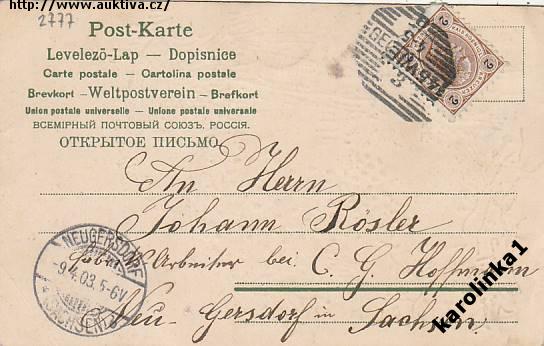 http://www.auktiva.cz/
2777
Post-Karte
Levelező-Lap — Dopisnice
Carte postale — Cartolina postale
Brevkort — Weltpostverein — Brefkort
Union postale universelle — Unione postale universale
ВСЕМІРНЫЙ ПОЧТОВЫЙ СОЮЗЪ. РОССІЯ.
ОТКРЫТОЕ ПИСЬМО
2 2
An Herrn
Johann Rösler
Arbeiter bei C. G. Hoffmann
Neu-Gersdorf in Sachsen
NEUGERSDORF
9.4.03. 5-6V
SACHSEN
karolinka1